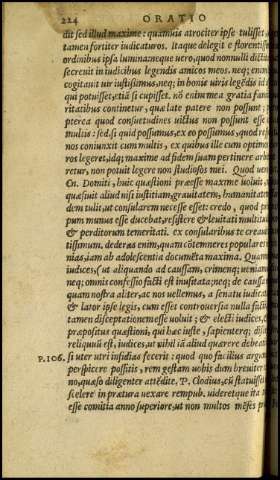 224 ORATIO
dit sed illud maxime: quamuis atrociter ipse tulisset
tamen fortiter iudicaturos. Itaque delegit e florentiss
ordinibus ipsa lumina: neque uero, quod nonnulli dictit
secreuit in iudicibus legendis amicos meos. neq; enim
cogitauit uir iustissimus, neq; in bonis uiris legēdis id
qui potuisset, etiā si cupisset. nō enim mea gratia fami
ritatibus continetur, quæ late patere non possunt:
pterea quod consuetudines uictus non possunt esse
multis: sed, si quid possumus, ex eo possumus, quod res
nos coniunxit cum multis, ex quibus ille cum optimo
ros legeret, idq; maxime ad fidem suam pertinere arbi
retur, non potuit legere non studiosos mei. Quod uero
Cn. Domiti, huic quæstioni præesse maxime uoluit,
quæsiuit aliud nisi iustitiam, grauitatem, humanitatem
dem tulit, ut consularem necesse esset: credo, quod prin
pum munus esse ducebat, resistere & leuitati multitud
& perditorum temeritati. ex consularibus te creauit
tissimum. dederas enim, quàm cōtemneres populareis
nias, iam ab adolescentia documēta maxima. Quam
iudices, ut aliquando ad caussam, crimenq; ueniam
neq; omnis confessio facti est inusitata, neq; de caussa
quam nostra aliter, ac nos uellemus, a senatu iudica
& lator ipse legis, cum esset controuersia nulla facti
tamen disceptationem esse uoluit: & electi iudices,
præpositus quæstioni, qui hæc iuste, sapienterq; dis
reliquū est, iudices, ut nihil iā aliud quærere debeat
P. 106. si uter utri insidias fecerit: quod quo facilius argum
perspicere possitis, rem gestam uobis dum breuiter
no, quæso diligenter attēdite. P. Clodius, cū statuiss
scelere in prætura uexare rempub. uideretque ita
esse comitia anno superiore, ut non multos mēses pr